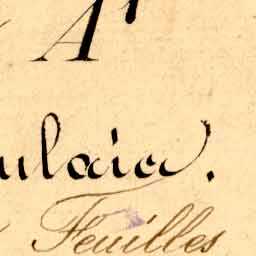 A'
ulaia.
Feuilles